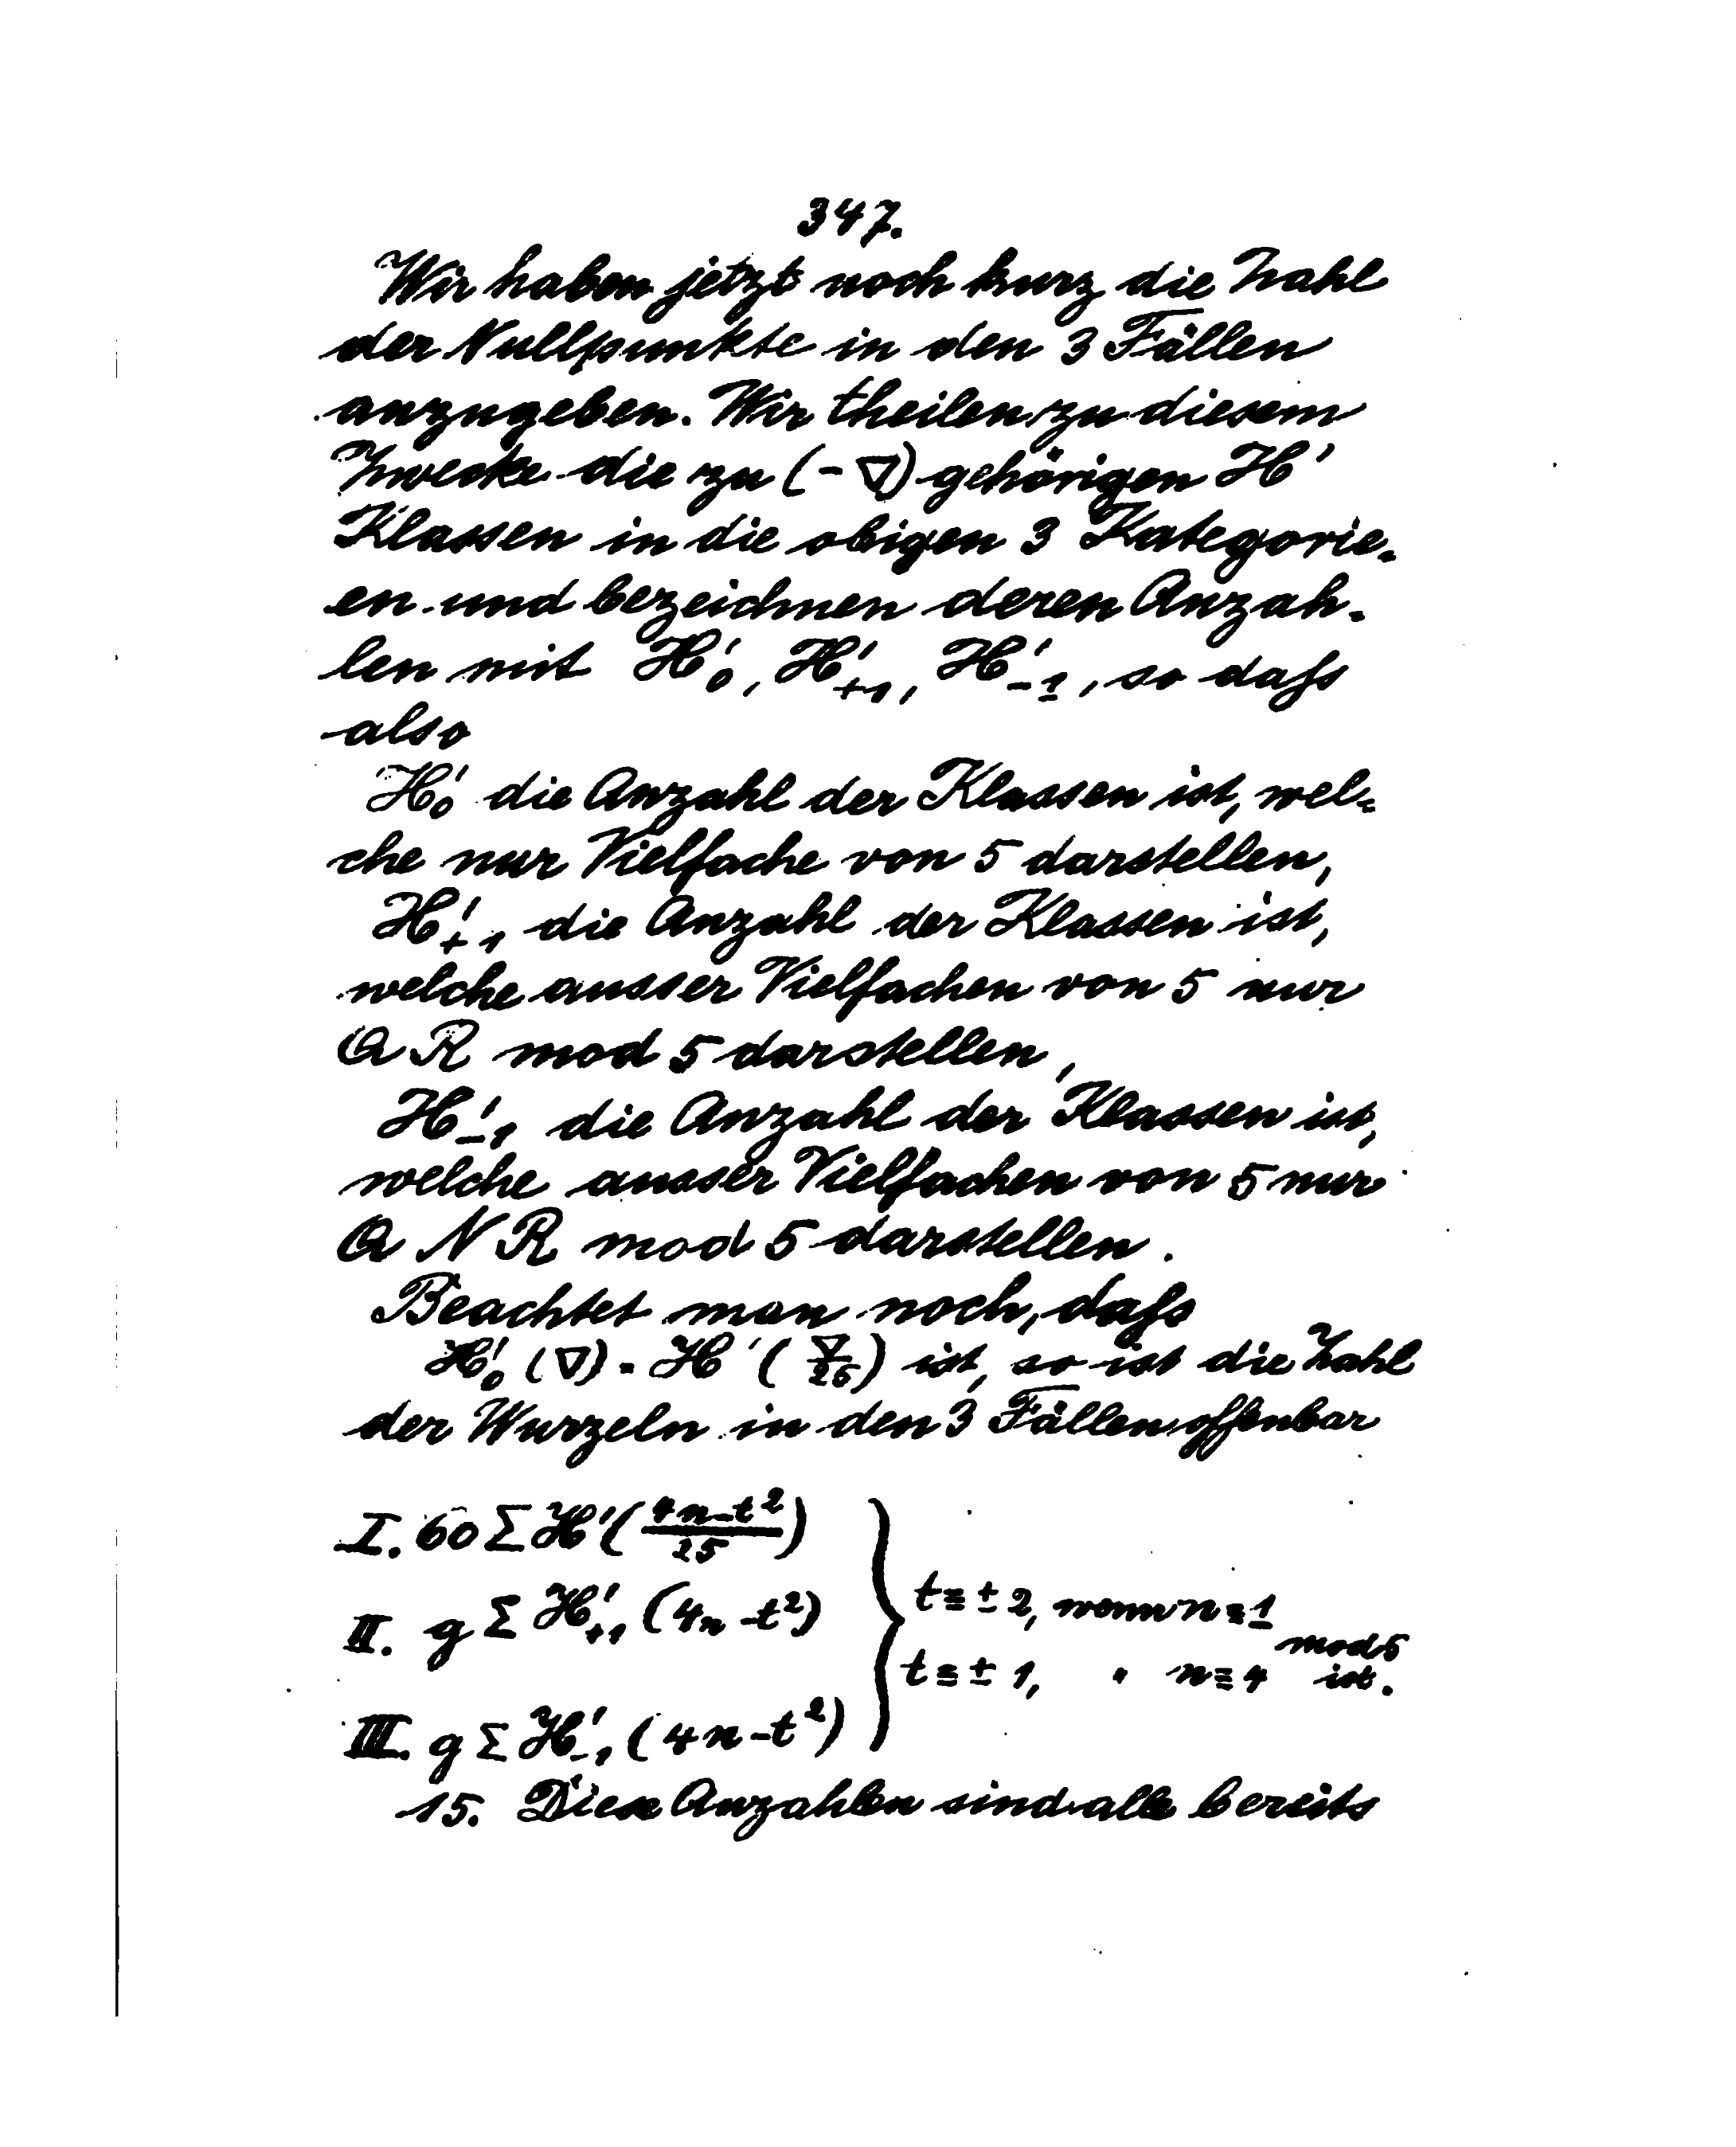 347.
Wir haben jetzt noch kurz die Zahl
der Nullpunkte in den 3 Fällen
anzugeben. Wir theilen zu diesem
Zwecke die zu (-∇) gehörigen H'
Klassen in die obigen 3 Kategorie-
en und bezeichnen deren Anzah-
len mit H'₀, H'₊₁, H'₋₁, so daſs
also
H'₀ die Anzahl der Klassen ist, wel-
che nur Vielfache von 5 darstellen,
H'₊₁, die Anzahl der Klassen ist,
welche ausser Vielfachen von 5 nur
Q R mod 5 darstellen,
H'₋₁ die Anzahl der Klassen ist,
welche ausser Vielfachen von 5 nur
Q N R mod 5 darstellen.
Beachtet man noch, daſs
H'₀ (∇) = H' (∇/25) ist, so ist die Zahl
der Wurzeln in den 3 Fällen offenbar
I. 60 Σ H' ((4n-t²)/25)
II. g Σ H'₊₁ (4n-t²)
t ≡ ± 2, wenn n ≡ 1
t ≡ ± 1, " n ≡ 4 mod 5 ist.
III. g Σ H'₋₁ (4n-t²)
15. Diese Anzahlen sind alle bereits